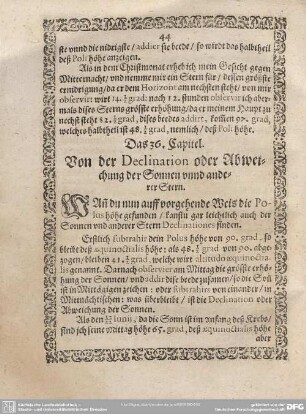 44
ste vnnd die nidrigste / addier sie beede / so wirdt das halbtheil
deß Poli höhe anzeigen.
Als in dem Christmonat erheb ich mein Gesicht gegen
Mitternacht / vnd nemme mir ein Stern für / dessen gröste
ernidrigung / da er dem Horizont am nechsten steht / von mir
observirt wirt 14. grad: nach 12. stunden observir ich aber
mals dises Sterns gröste erhöhung / da er meinem Haupt zu
nechst steht 82. grad, dises beedes addirt, kommen 97. grad,
welches halbtheil ist 48. grad, nemlich / deß Poli höhe.
Das 36. Capitel.
Von der Declination oder Abwei-
chung der Sonnen vnnd ande-
rer Stern.
WAn du nun auff vorgehende Weis die Po-
lus höhe gefunden / kanstu gar leichtlich auch der
Sonnen vnd anderer Stern Declinationes finden.
Erstlich subtrahir dein Polus höhe von 90. grad, so
bleibt deß aequinoctialis höhe: als 48. grad von 90. abge-
zogen / bleiben 41. grad, welche wirt altitudo aequinoctia-
lis genannt. Darnach observier am Mittag die gröste erhö-
hung der Sonnen / vnd addir die beede zusamen / so die Son
ist in Mittägigen zeichen: oder subtrahir von einander / in
Mitnächtischen: was überbleibt / ist die Declination oder
Abweichung der Sonnen.
Als den Iunij, da die Sonn ist im anfang deß Krebs /
find ich seine mittag höhe 65. grad, deß aequinoctialis höhe
aber